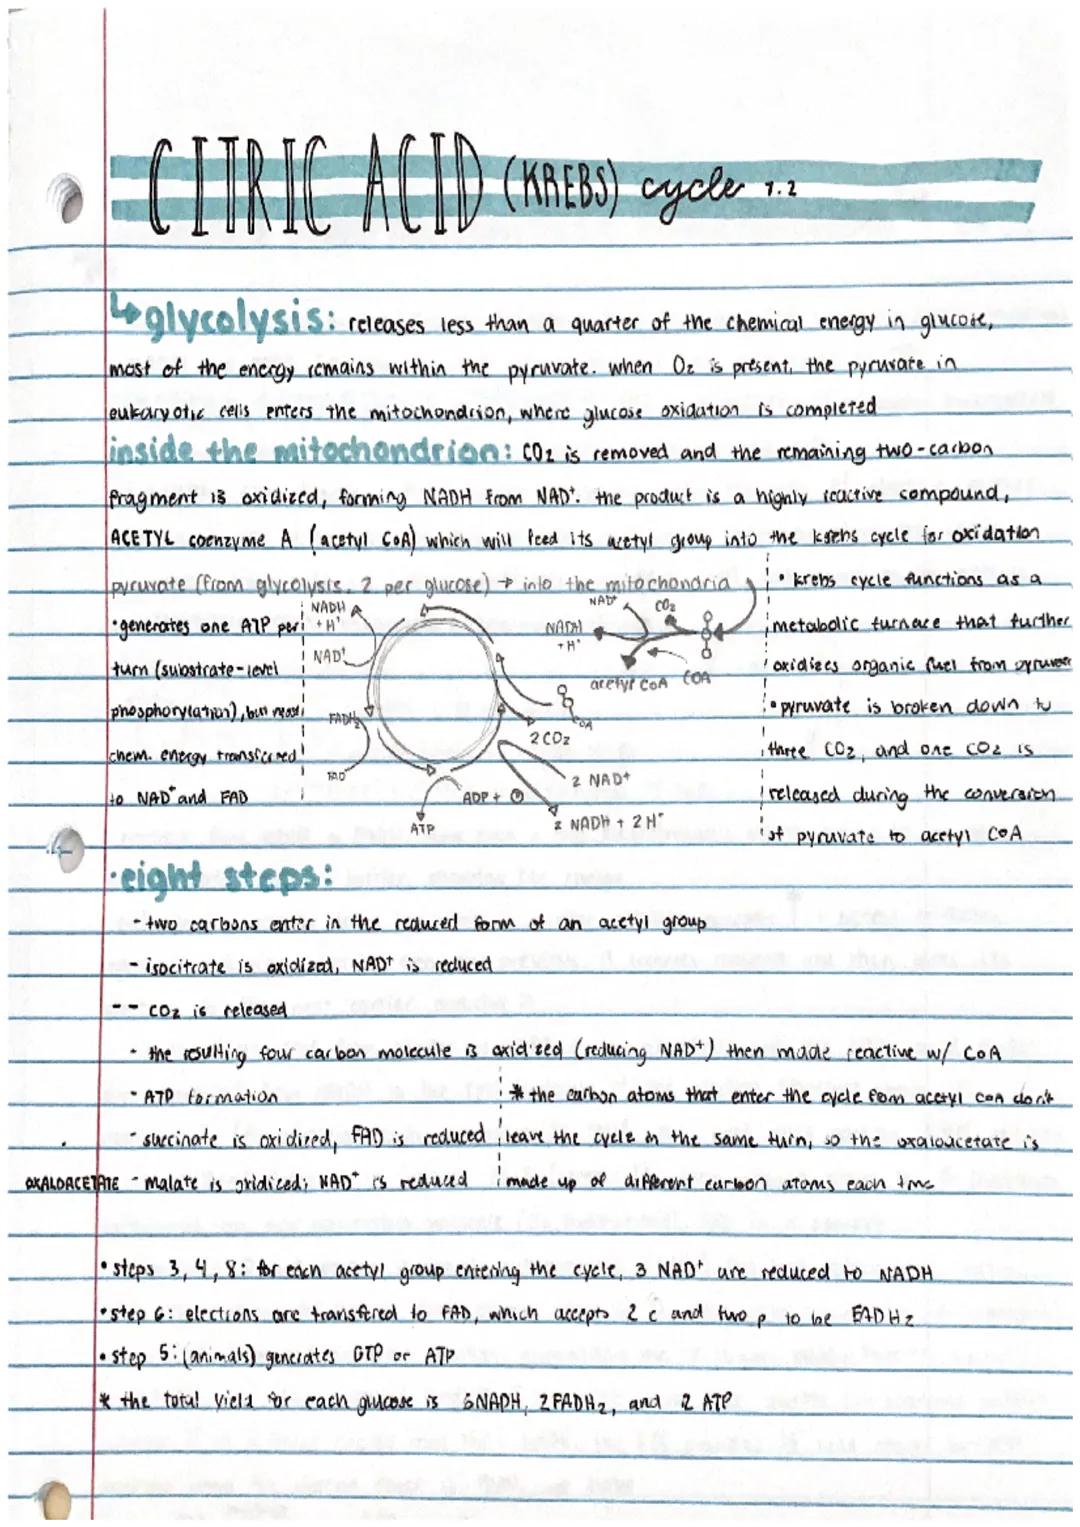 CITRIC ACID (KREBS) cycle 7.2
↳glycolysis: releases less than a quarter of the chemical energy in glucose,
most of the energy remains within the pyruvate. when O₂ is present, the pyruvate in
eukaryotic cells enters the mitochondrion, where glucose oxidation is completed
inside the mitochondrion: CO₂ is removed and the remaining two-carbon
fragment is oxidized, forming NADH from NAD⁺. the product is a highly reactive compound,
ACETYL coenzyme A (acetyl CoA) which will feed its acetyl group into the krebs cycle for oxidation
pyruvate (from glycolysis, 2 per glucose) → into the mitochondria
•generates one ATP per
turn (substrate-level
phosphorylation), but most
chem. energy transferred
to NAD⁺ and FAD
NADH
+ H⁺
NAD⁺
FADH₂
FAD
ATP
ADP + P
NAD⁺
CO₂
NADH
+ H⁺
acetyl CoA
COA
COA
2 CO₂
2 NAD⁺
2 NADH + 2 H⁺
• krebs cycle functions as a
metabolic furnace that further
oxidizes organic fuel from pyruvate
• pyruvate is broken down to
three CO₂, and one CO₂ is
released during the conversion
of pyruvate to acetyl CoA
•eight steps:
- two carbons enter in the reduced form of an acetyl group
- isocitrate is oxidized, NAD⁺ is reduced
-- CO₂ is released
- the resulting four carbon molecule is oxidized (reducing NAD⁺) then made reactive w/ CoA
- ATP formation
- succinate is oxidized, FAD is reduced
OXALOACETATE - malate is oxidized; NAD⁺ is reduced
* the carbon atoms that enter the cycle from acetyl coA don't
leave the cycle in the same turn, so the oxaloacetate is
made up of different carbon atoms each time
• steps 3, 4, 8: for each acetyl group entering the cycle, 3 NAD⁺ are reduced to NADH
• step 6: electrons are transfered to FAD, which accepts 2 e and two p to be FADH₂
• step 5: (animals) generates GTP or ATP
* the total yield for each glucose is 6NADH, 2FADH₂, and 2 ATP